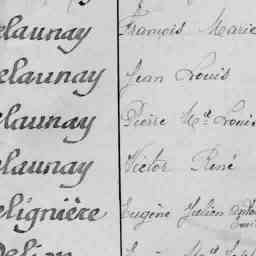 elaunay François Marie
elaunay Jean Louis
elaunay Pierre M.el Louis
elaunay Victor René
elignière Eugène Julien
Delion